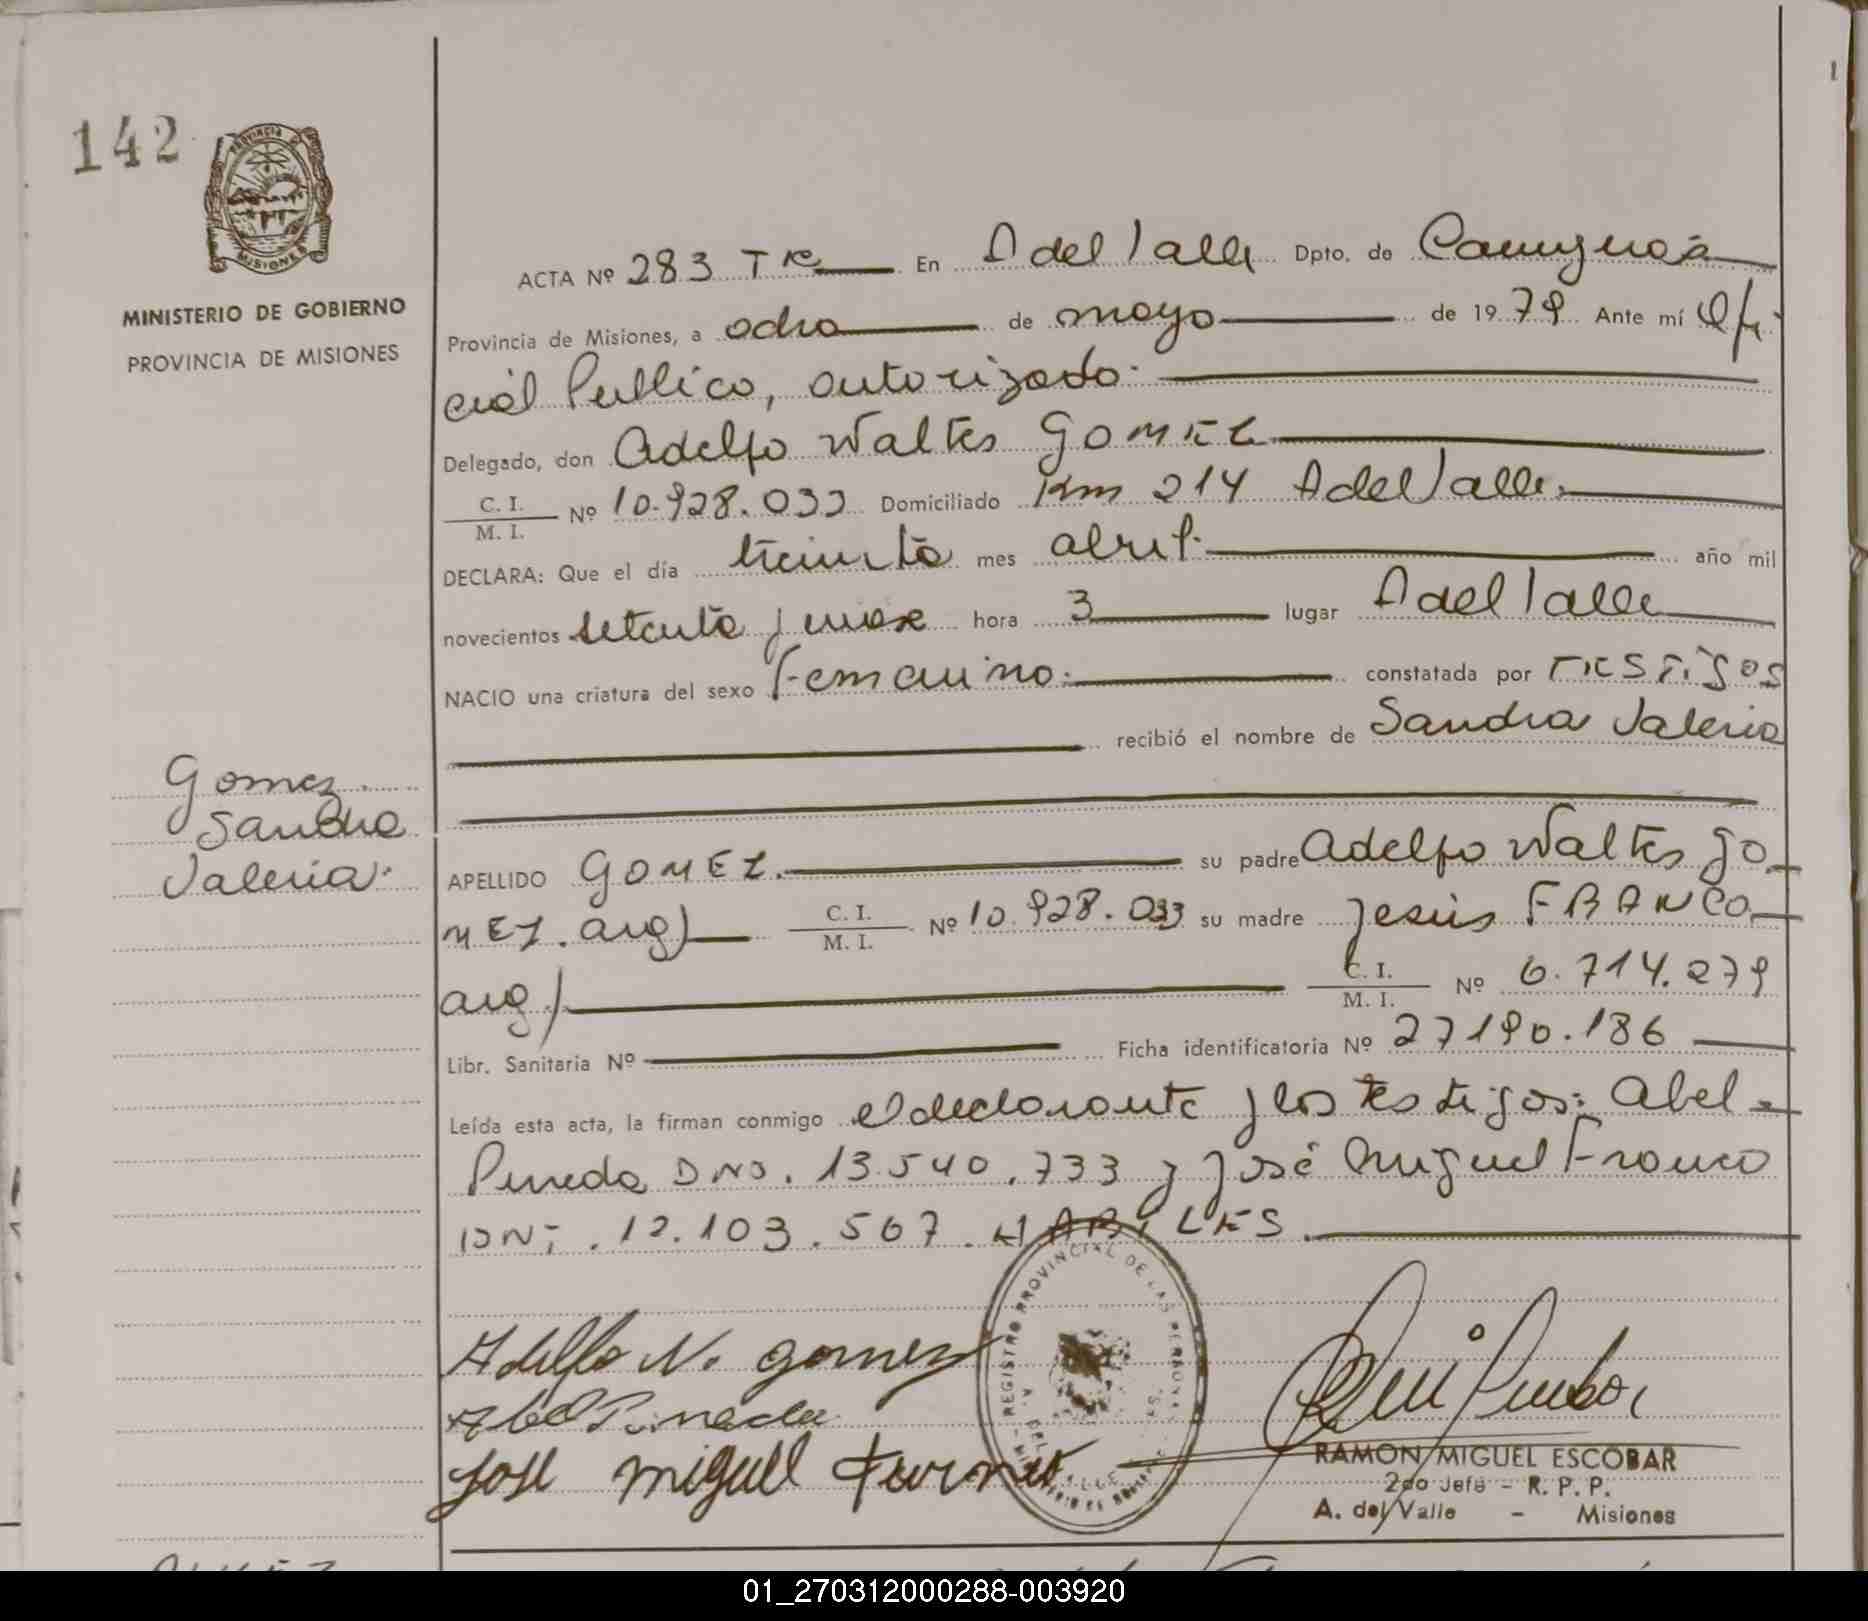 142
PROVINCIA DE
MISIONES
MINISTERIO DE GOBIERNO
PROVINCIA DE MISIONES
ACTA Nº 283 TR En A del Valle Dpto. de Caınguás
Provincia de Misiones, a ocho de mayo de 1979 Ante mí Ofi
cial Publico, autorizado.
Delegado, don Adelfo Walter GOMEZ
C. I.
M. I. Nº 10.928.033 Domiciliado Km 214 A del Valle.
DECLARA: Que el día treinta mes abril. año mil
novecientos setenta y nueve hora 3 lugar A del Valle
NACIO una criatura del sexo Femenino. constatada por TESTiGOS
recibió el nombre de Sandra Valeria
Gomez
Sandra
Valeria.
APELLIDO GOMEZ. su padre Adelfo Walter GO
MEZ. arg) C. I.
M. I. Nº 10.928.033 su madre Jesús FRANCO
arg) C. I.
M. I. Nº 6.714.279
Libr. Sanitaria Nº Ficha identificatoria Nº 27190.186
Leída esta acta, la firman conmigo el declarante y los testigos: Abel
Pineda DNI. 13.540.733 y José Miguel Franco
DNi. 12.103.567. HABiLES.
REGISTRO PROVINCIAL DE LAS PERSONAS
A. DEL VALLE
Adelfo W. gomez
Abel Pineda
José miguel Franco
RAMON MIGUEL ESCOBAR
2do Jefe - R. P. P.
A. del Valle - Misiones
01_270312000288-003920